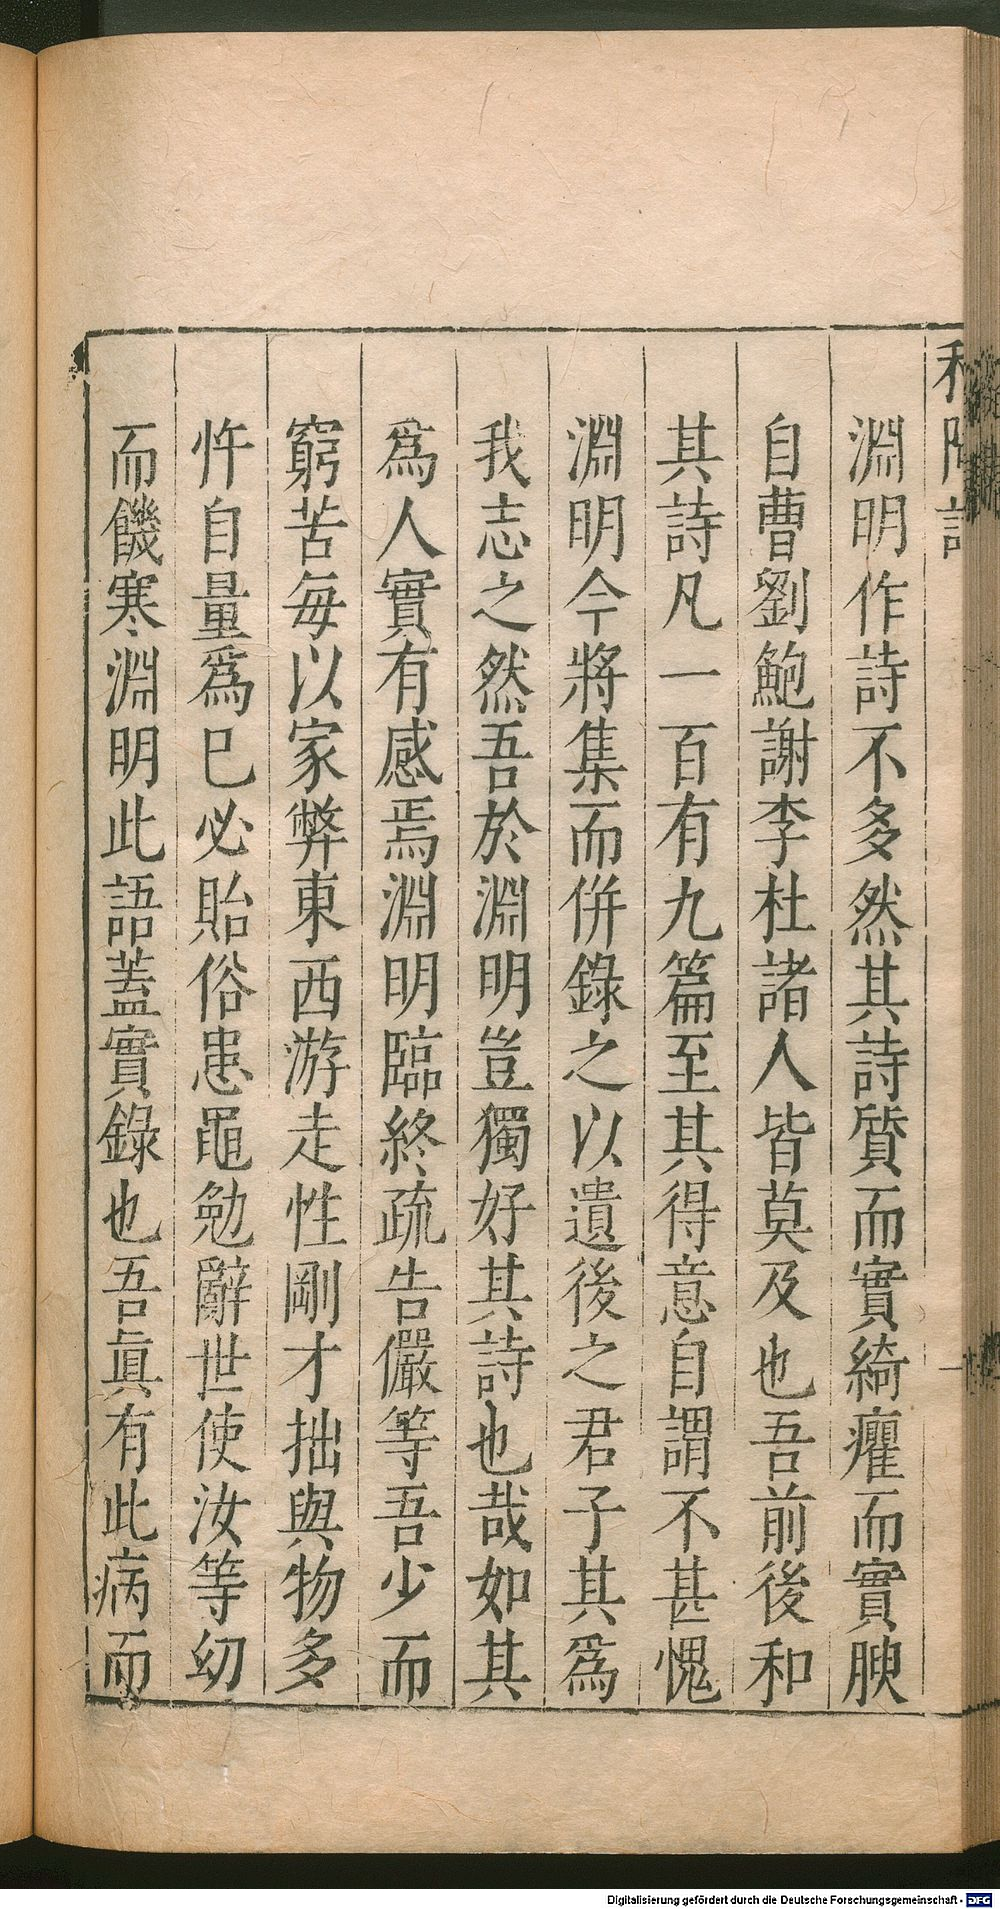 淵明作詩不多然其詩質而實綺癯而實腴
自曹劉鮑謝李杜諸人皆莫及也吾前後和
其詩凡一百有九篇至其得意自謂不甚愧
淵明今將集而併錄之以遺後之君子其爲
我志之然吾於淵明豈獨好其詩也哉如其
爲人實有感焉淵明臨終疏告儼等吾少而
窮苦每以家弊東西游走性剛才拙與物多
忤自量爲巳必貽俗患黽勉辭世使汝等幼
而饑寒淵明此語蓋實錄也吾眞有此病而
Digitalisierung gefördert durch die Deutsche Forschungsgemeinschaft - DFG